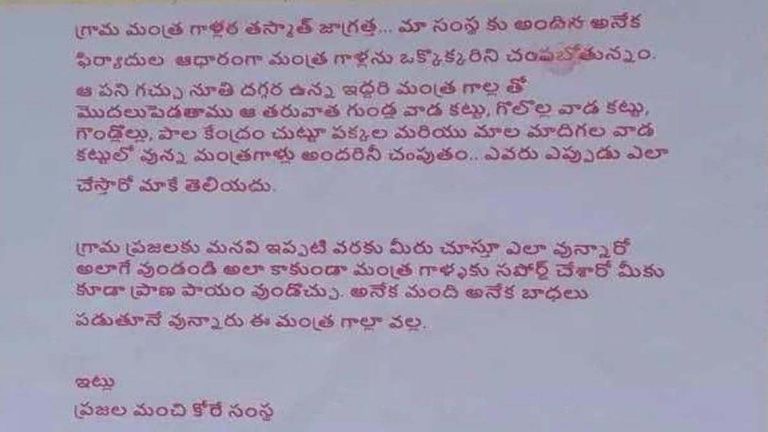 గ్రామ మంత్ర గాళ్లర తస్మాత్ జాగ్రత్త... మా సంస్థ కు అందిన అనేక
ఫిర్యాదుల ఆధారంగా మంత్ర గాళ్లను ఒక్కొక్కరిని చంపబోతున్నం.
ఆ పని గచ్చు నూతి దగ్గర ఉన్న ఇద్దరి మంత్ర గాల్ల తో
మొదలుపెడతాము ఆ తరువాత గుండ్ల వాడ కట్టు, గొలొల్ల వాడ కట్టు,
గొండ్లొల్లు, పాల కేంద్రం చుట్టూ పక్కల మరియు మాల మాదిగల వాడ
కట్టులో వున్న మంత్రగాళ్లు అందరినీ చంపుతం.. ఎవరు ఎప్పుడు ఎలా
చేస్తారో మాకే తెలియదు.
గ్రామ ప్రజలకు మనవి ఇప్పటి వరకు మీరు చూస్తూ ఎలా వున్నారో
అలాగే వుండండి అలా కాకుండా మంత్ర గాళ్ళకు సపోర్ట్ చేశారో మీకు
కూడా ప్రాణ పాయం వుండొచ్చు. అనేక మంది అనేక బాధలు
పడుతూనే వున్నారు ఈ మంత్ర గాల్లా వల్ల.
ఇట్లు
ప్రజల మంచి కోరే సంస్థ